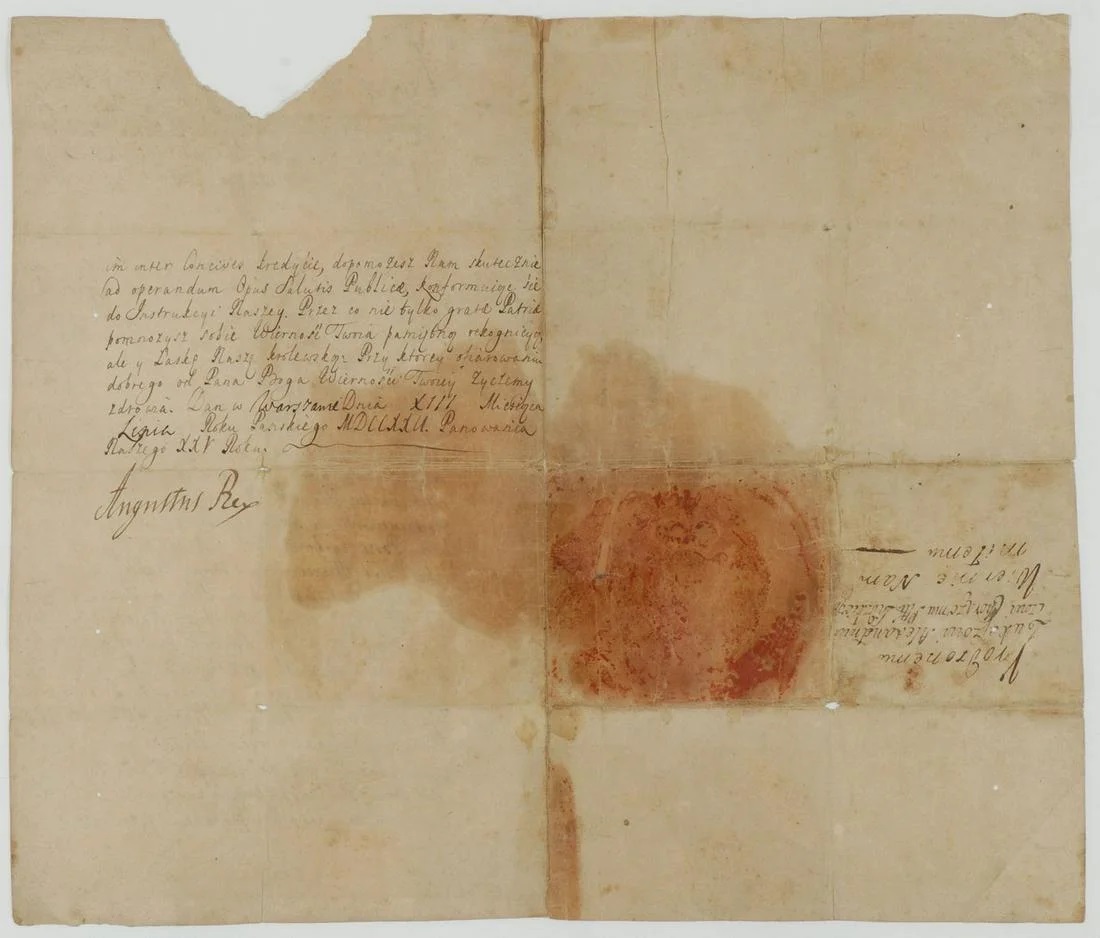 im inter Concives kredycie, dopomożesz Nam skutecznie
ad operandum Opus Salutis Publicæ, Konformuiąc się
do Instrukcyi Naszey. Przez co nie tylko gratæ Patriæ
pomnożysz sobie Wierność Twoia pamiętną rekognicyą,
ale y Łaskę Naszą krolewską: Przy ktorey ofiarowaniu
dobrego od Pana Boga Wierności Twoiey życzemy
zdrowia. Dan w Warszawie Dnia XIII Miesiąca
Lipca Roku Pańskiego MDCCXXII. Panowania
Naszego XXV Roku.
Augustus Rex
Urodzonemu
Alexandrowi
Chorążemu
Wiernie Nam
miłemu